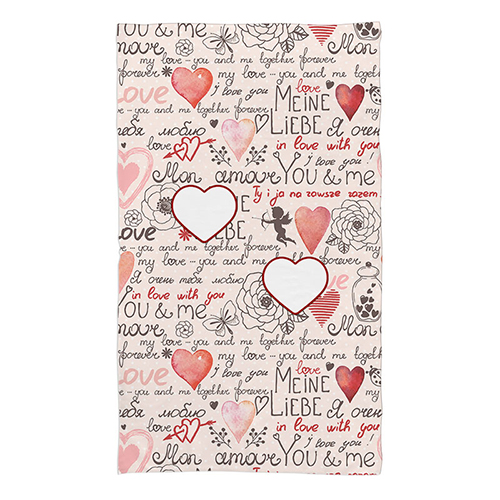 you & me
Mon
my love - you and me together
forever
my love - you and me together forever
Love
I love you
love
love - you and me together forever
MEINE
LIEBE
тебя люблю
Я очень
love
in love with you
I love you!
Mon amour YOU & me
Ty i ja na zawsze razem
love - you and me together forever
my love - you and me together forever
Я очень тебя люблю
in love with you
love - you and me together forever
amour
Mon
my love - you and me together
forever
my love - you and me together forever
Love
I love you
love
love - you and me together forever
MEINE
LIEBE
тебя люблю
Я очень
love
in love with you
I love you!
Mon amour YOU & me